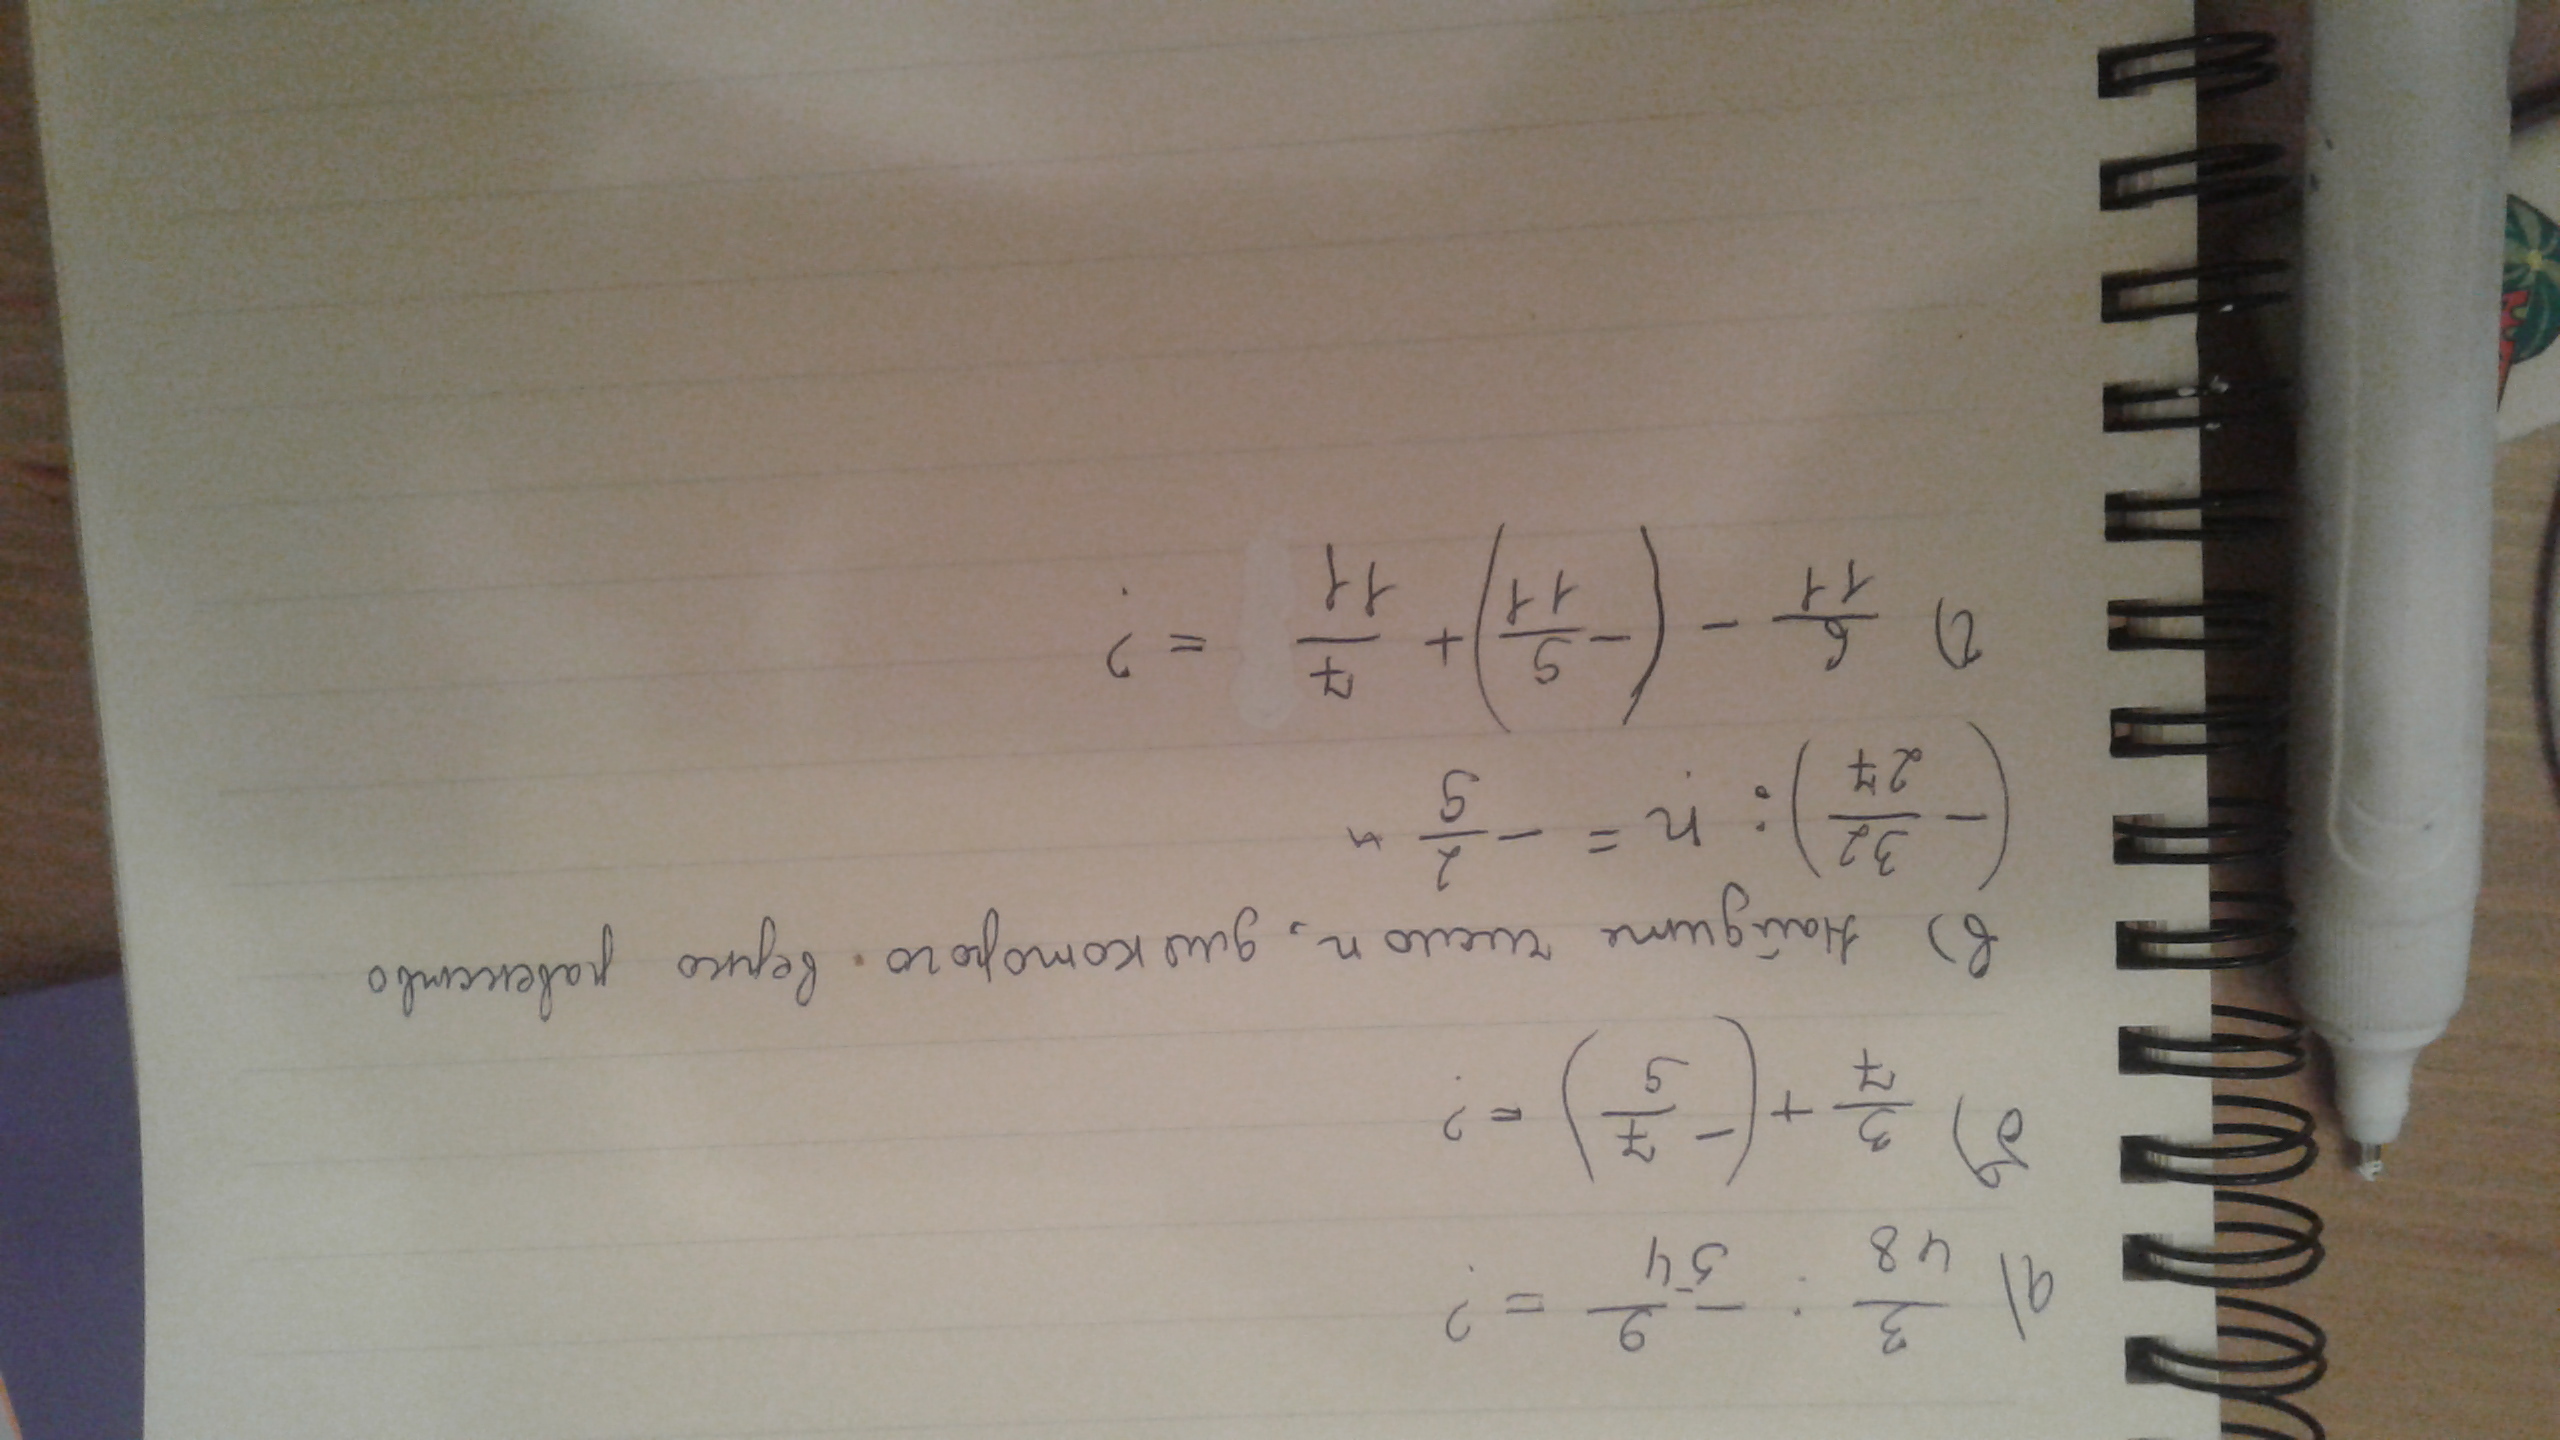 а) 3/48 : -9/54 = ?
б) 3/7 + (-7/5) = ?
в) Найдите число n, для которого верно равенство
(-32/27) : n = -2/5
г) 6/11 - (-5/11) + 7/11 = ?